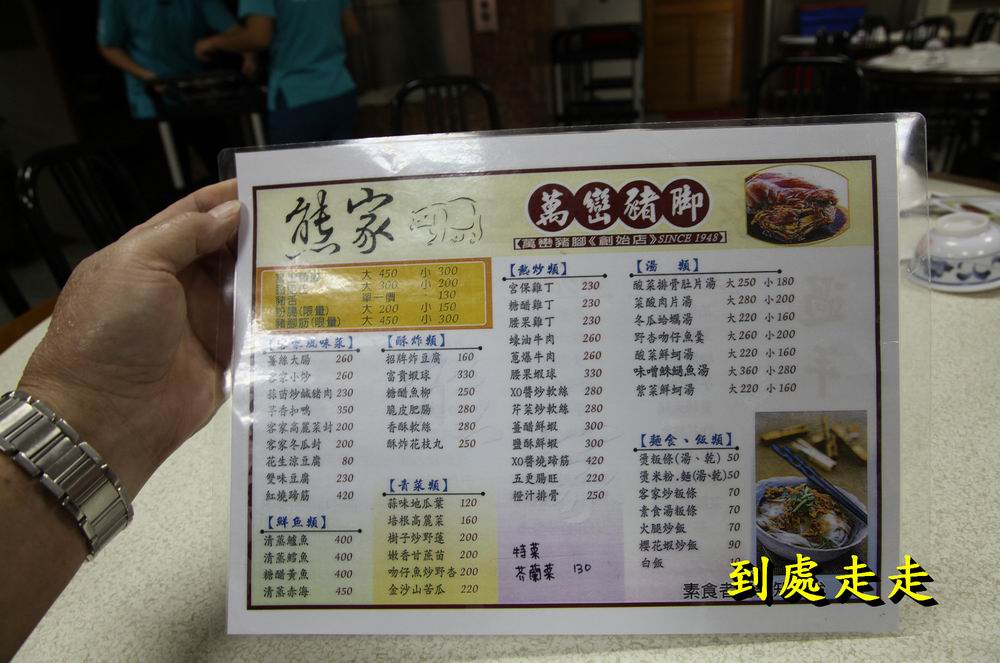 熊家
萬巒豬脚
【萬巒豬腳《創始店》SINCE 1948】
大 450 小 300
大 300 小 200
豬舌 單一價 130
粉腸(限量) 大 200 小 150
豬腳筋(限量) 大 450 小 300
【客家風味菜】
薑絲大腸 260
客家小炒 260
蒜苗炒鹹豬肉 230
子香扣鴨 350
客家高麗菜封 200
客家冬瓜封 200
花生涼豆腐 80
雙味豆腐 230
紅燒蹄筋 420
【鮮魚類】
清蒸鱸魚 400
清蒸鱈魚 400
糖醋黃魚 400
清蒸赤海 450
【酥炸類】
招牌炸豆腐 160
富貴蝦球 330
糖醋魚柳 250
脆皮肥腸 280
香酥軟絲 280
酥炸花枝丸 250
【青菜類】
蒜味地瓜葉 120
培根高麗菜 160
樹子炒野蓮 200
嫩香甘蔗苗 200
吻仔魚炒野杏 200
金沙山苦瓜 220
【熱炒類】
宮保雞丁 230
糖醋雞丁 230
腰果雞丁 230
蠔油牛肉 260
蔥爆牛肉 260
腰果蝦球 330
XO醬炒軟絲 280
芹菜炒軟絲 280
薑醋鮮蝦 300
鹽酥鮮蝦 300
XO醬燒蹄筋 420
五更腸旺 220
橙汁排骨 250
特菜
芥蘭菜 130
【湯 類】
酸菜排骨肚片湯 大 250 小 180
菜酸肉片湯 大 280 小 200
冬瓜蛤蠣湯 大 220 小 160
野杏吻仔魚羹 大 260 小 200
酸菜鮮蚵湯 大 220 小 160
味噌鮢鱲魚湯 大 360 小 280
紫菜鮮蚵湯 大 220 小 160
【麵食、飯類】
燙粄條(湯、乾) 50
燙米粉.麵(湯、乾) 50
客家炒粄條 70
素食湯粄條 70
火腿炒飯 70
櫻花蝦炒飯 90
白飯
素食者
到處走走